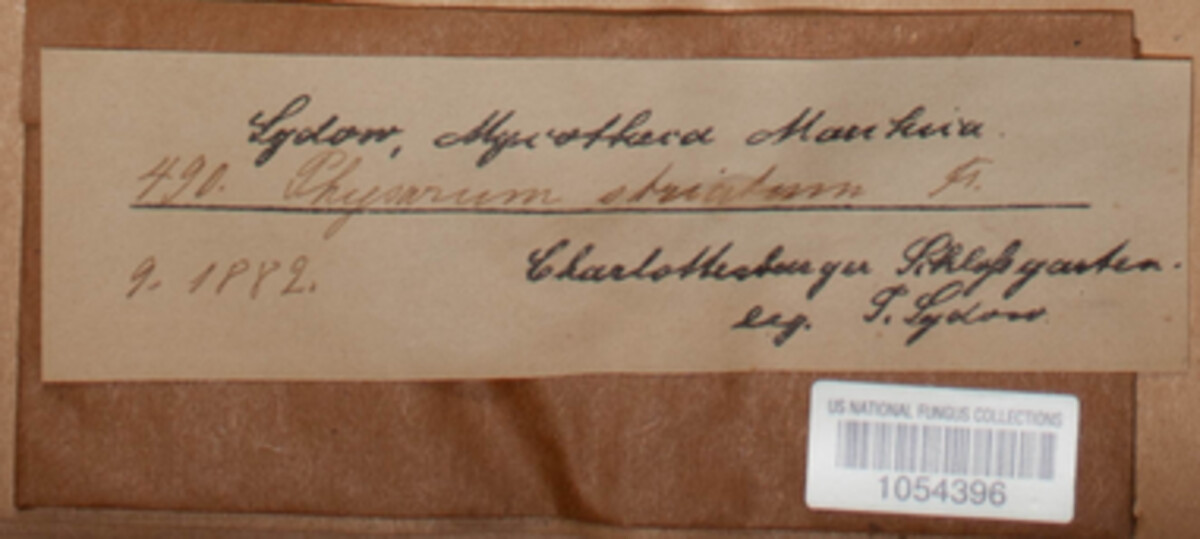 Sydow, Mycotheca Marchica.
490. Physarum striatum Fr.
9. 1882.
Charlottenburger Schloßgarten.
leg. P. Sydow
US NATIONAL FUNGUS COLLECTIONS
1054396